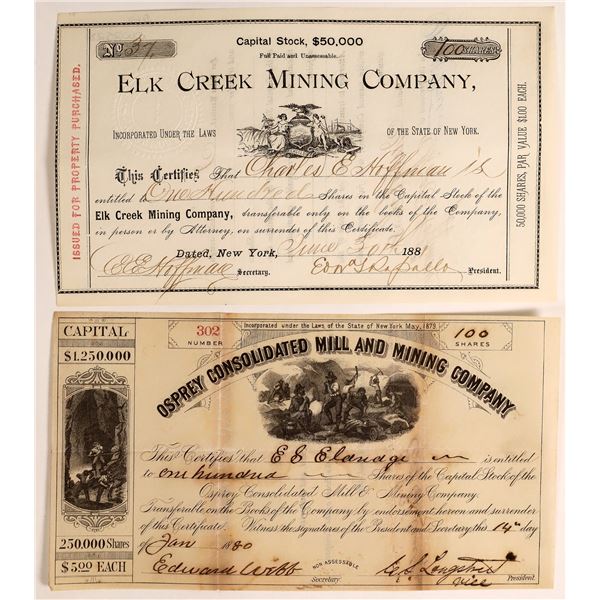 No 37
Capital Stock, $50,000
Full Paid and Unassessable.
100 SHARES
ELK CREEK MINING COMPANY,
INCORPORATED UNDER THE LAWS OF THE STATE OF NEW YORK.
This Certifies That Charles E Hoffman is
entitled to One Hundred Shares in the Capital Stock of the
Elk Creek Mining Company, transferable only on the books of the Company,
in person or by Attorney, on surrender of this Certificate.
Dated, New York, June 30th 1881
C E Hoffman Secretary. President.
ISSUED FOR PROPERTY PURCHASED.
50,000 SHARES, PAR VALUE $1.00 EACH.
CAPITAL
$1.250.000
302
NUMBER
Incorporated under the Laws of the State of New York May, 1879.
100
SHARES
OSPREY CONSOLIDATED MILL AND MINING COMPANY
This Certifies that E E Eldridge is entitled
to One hundred Shares of the Capital Stock of the
Osprey Consolidated Mill & Mining Company.
Transferable on the Books of the Company by endorsement hereon and surrender
of this Certificate. Witness the signatures of the President and Secretary, this 14th day
of Jan 1880
250.000 Shares
$5.00 EACH
Edward Webb
NON ASSESSABLE
Secretary
Longstreet
Vice President.